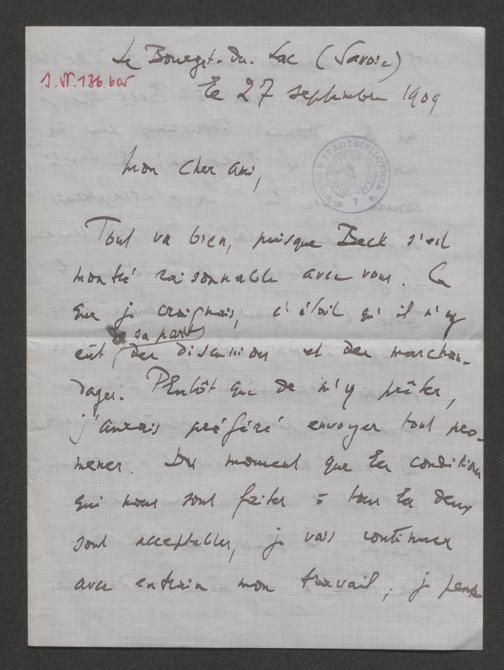 Le Bourget-du-Lac (Savoie)
J.N. 136.605
le 27 septembre 1909
WIENER STADTBIBLIOTHEK
Mon cher ami,
Tout va bien, puisque Beck s'est
montré raisonnable avec vous. Ce
que je craignais, c'était qu'il n'y
de sa part
eût, des discussions et des marchan-
dages. Plutôt que de m'y prêter,
j'aurais préféré envoyer tout pro-
mener. Du moment que les conditions
qui nous sont faites à tous les deux
sont acceptables, je vais continuer
avec entrain mon travail ; je pense